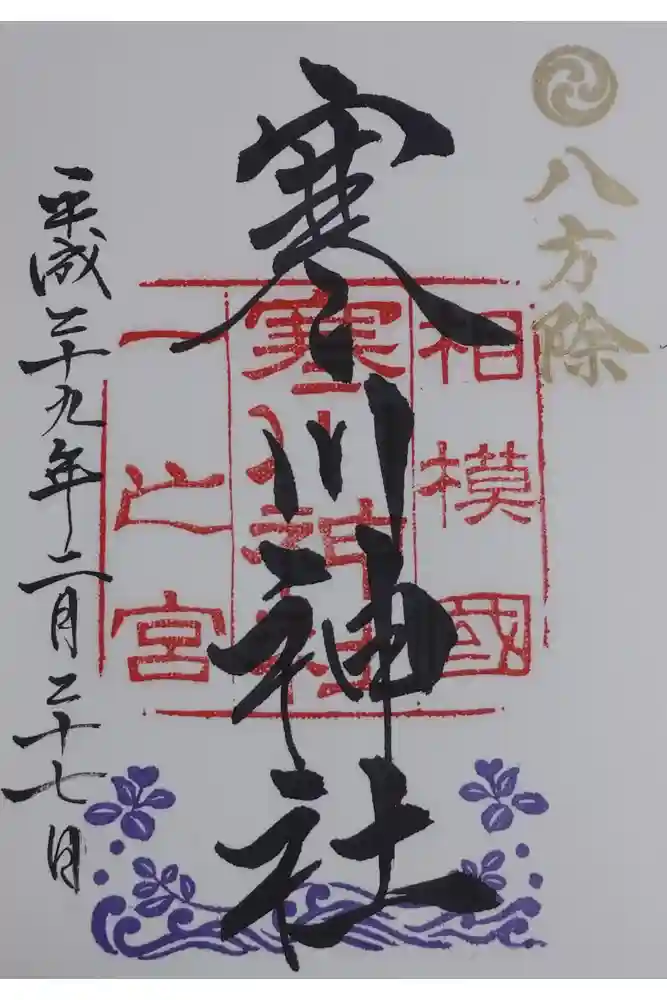 八方除
相模國
寒川神社
一之宮
寒川神社
平成二十九年二月二十七日